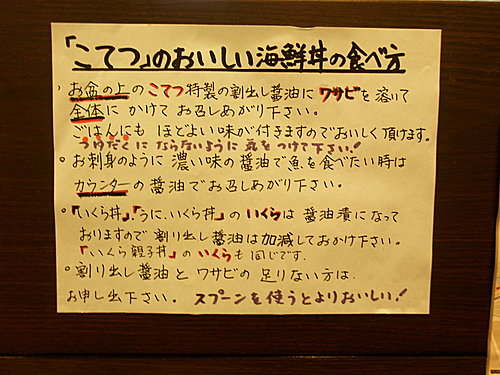 「こてつ」のおいしい海鮮丼の食べ方
。お盆の上のこてつ特製の割出し醤油にワサビを溶いて
全体にかけてお召しあがり下さい。
ごはんにもほどよい味が付きますのでおいしく頂けます。
つゆだくにならないように気をつけて下さい!
。お刺身のように濃い味の醤油で魚を食べたい時は
カウンターの醤油でお召しあがり下さい。
。「いくら丼」、「うに、いくら丼」のいくらは醤油漬になって
おりますので割り出し醤油は加減しておかけ下さい。
「いくら親子丼」のいくらも同じです.
。割り出し醤油とワサビの足りない方は、
お申し出下さい。スプーンを使うとよりおいしい!